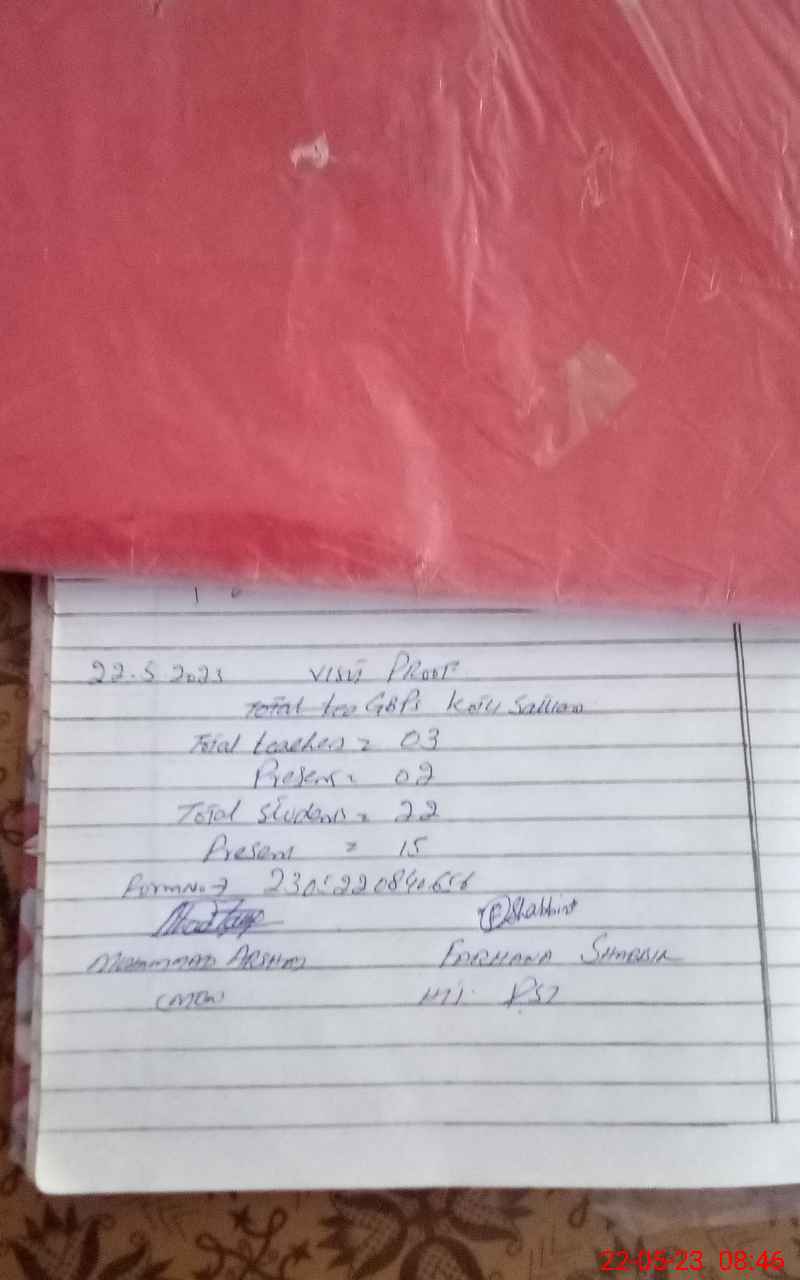 22.5 2023 Visit PROOF
Total GBPS Kotli
Total teacher = 03
Present = 02
Total Students = 22
Present = 15
Form No → 230522084
Shabbir
MOHAMMAD ARSHAD
FARHANA SHABBIR
PST
22-05-23 08:46